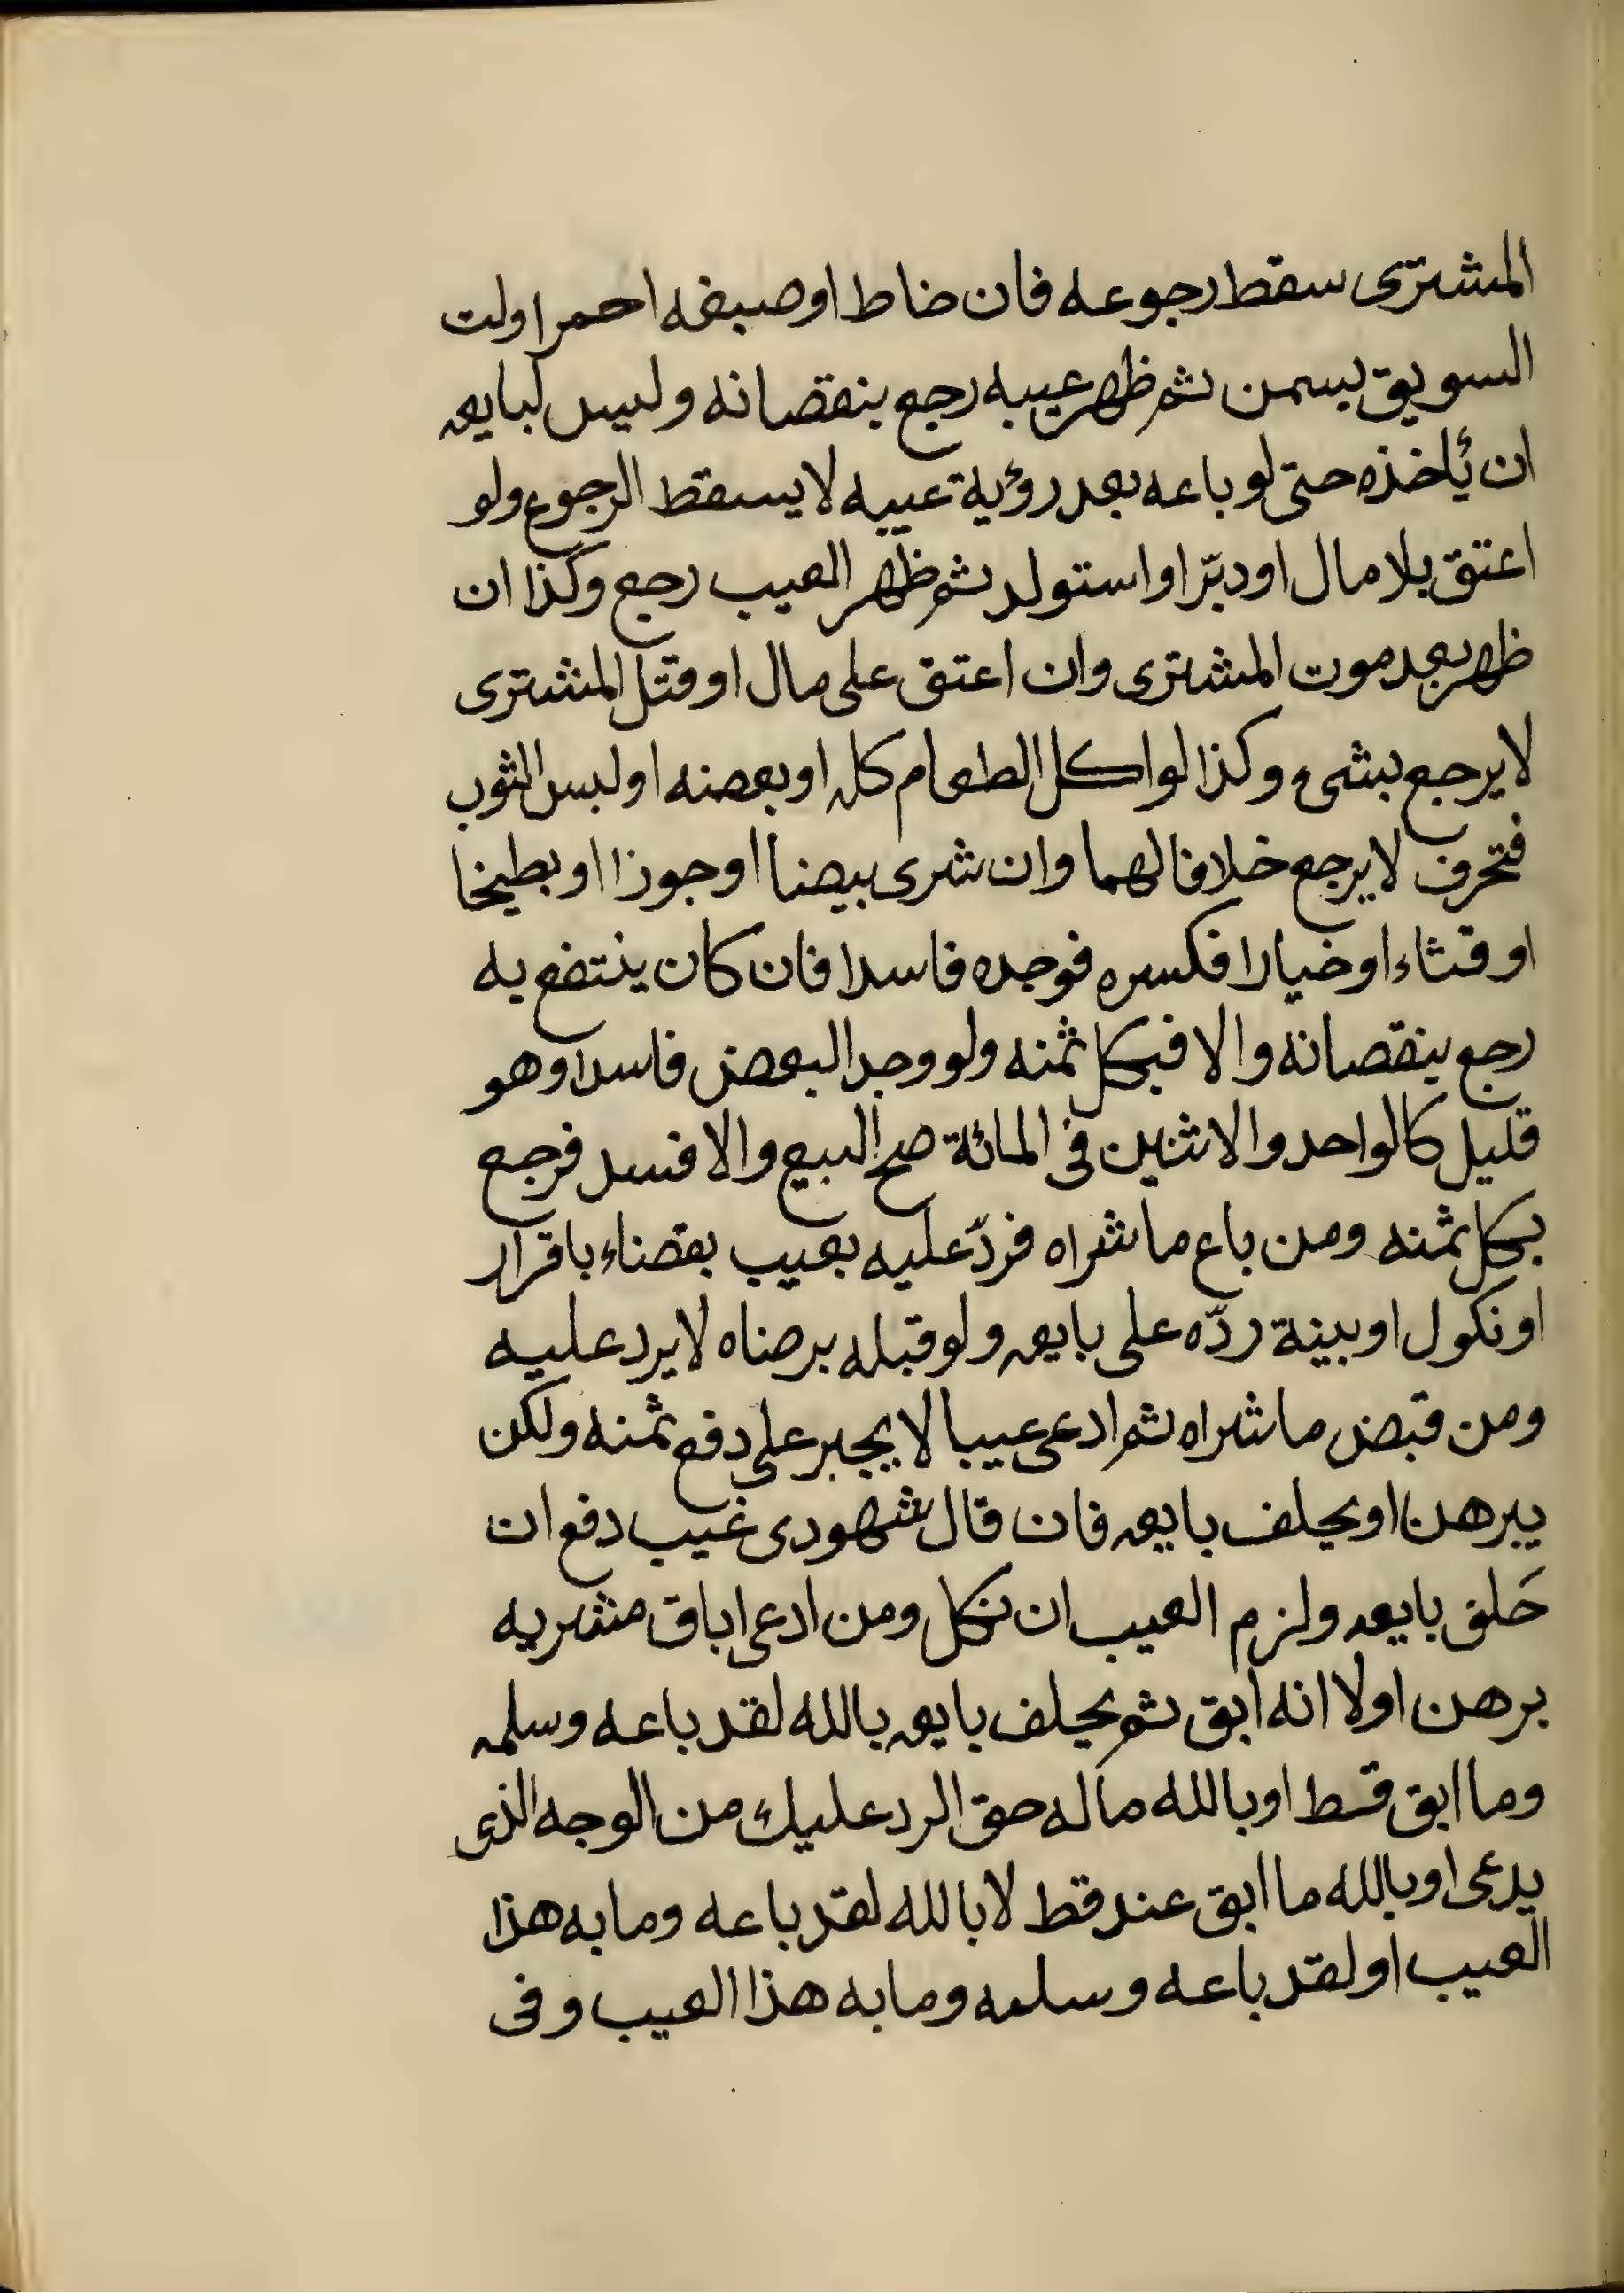 المشترى سقط رجوعه فان خاط او صبغه احمر او لت
السويق بسمن ثم ظهر عيبه رجع بنقصانه وليس لبايعه
ان يأخذه حتى لو باعه بعد رؤية عيبه لا يسقط الرجوع ولو
اعتق بلا مال او دبّر او استولد ثم ظهر العيب رجع وكذا ان
ظهر بعد موت المشترى وان اعتق على مال او قتل المشترى
لا يرجع بشىء وكذا لو اكل الطعام كله او بعضه او لبس الثوب
فتخرق لا يرجع خلافا لهما وان شرى بيضا او جوزا او بطيخا
او قثاء او خيارا فكسره فوجده فاسدا فان كان ينتفع به
رجع بنقصانه والا فبكل ثمنه ولو وجد البعض فاسدا وهو
قليل كالواحد والاثنين فى المائة صح البيع والا فسد فرجع
بكل ثمنه ومن باع ما شراه فردّ عليه بعيب بقضاء باقرار
او نكول او بينة ردّه على بايعه ولو قبله برضاه لا يرد عليه
ومن قبض ما شراه ثم ادعى عيبا لا يجبر على دفع ثمنه ولكن
يبرهن او يحلف بايعه فان قال شهودى غيب دفع ان
حَلف بايعه ولزم العيب ان نكل ومن ادعى اباق مشريه
برهن اولا انه ابق ثم يحلف بايعه بالله لقد باعه وسلمه
وما ابق قط او بالله ماله حق الرد عليك من الوجه الذى
يدعى او بالله ما ابق عند قط لا بالله لقد باعه وما به هذا
العيب او لقد باعه وسلمه وما به هذا العيب وفى